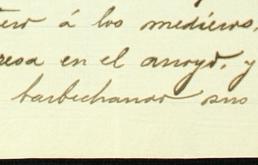 tero á los medieros,
resa en el arroyo, y
barbechando sus